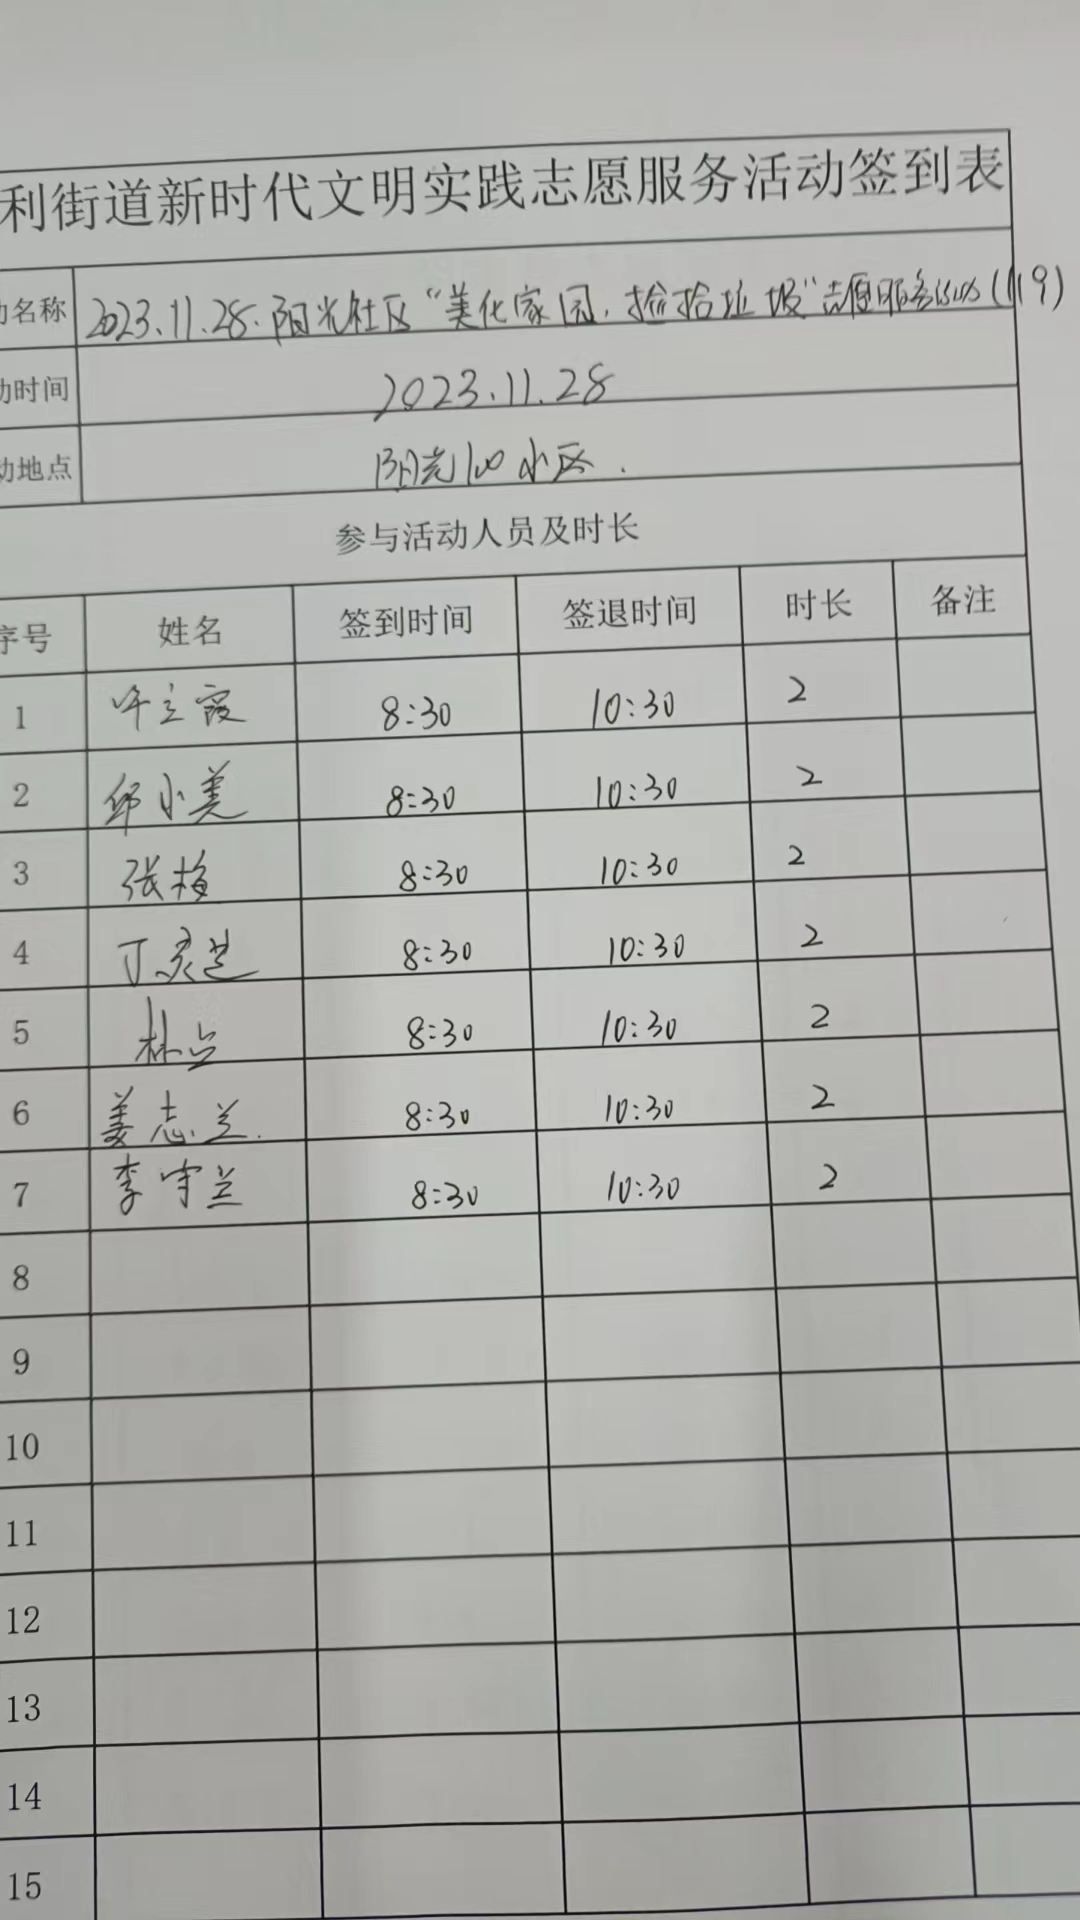 利街道新时代文明实践志愿服务活动签到表
动名称 2023.11.28.阳光社区“美化家园,捡拾垃圾”志愿服务活动(119)
动时间 2023.11.28
动地点 阳光100小区.
参与活动人员及时长
序号 姓名 签到时间 签退时间 时长 备注
1 许立霞 8:30 10:30 2
2 邱小美 8:30 10:30 2
3 张梅 8:30 10:30 2
4 丁灵芝 8:30 10:30 2
5 林 8:30 10:30 2
6 姜志兰. 8:30 10:30 2
7 李守兰 8:30 10:30 2
8
9
10
11
12
13
14
15